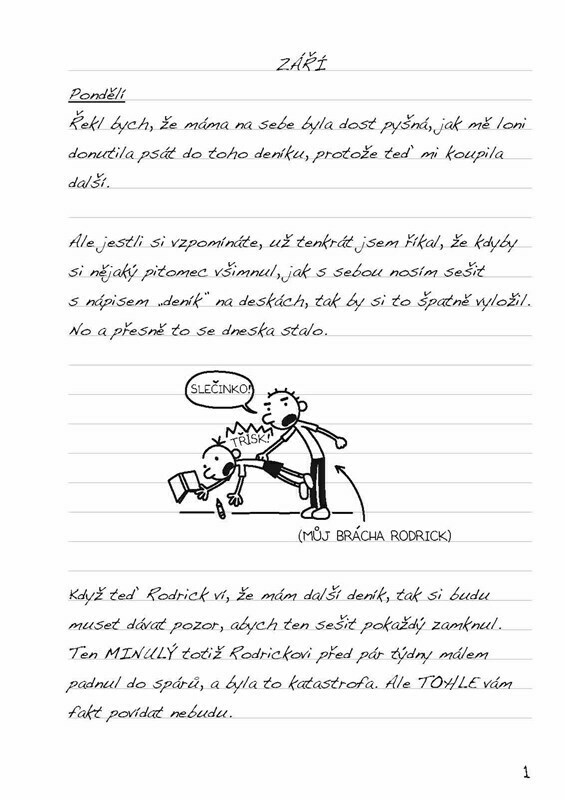 ZÁŘÍ
Pondělí
Řekl bych, že máma na sebe byla dost pyšná, jak mě loni
donutila psát do toho deníku, protože teď mi koupila
další.
Ale jestli si vzpomínáte, už tenkrát jsem říkal, že kdyby
si nějaký pitomec všimnul, jak s sebou nosím sešit
s nápisem „deník" na deskách, tak by si to špatně vyložil.
No a přesně to se dneska stalo.
SLEČINKO!
TŘÍSK!
(MŮJ BRÁCHA RODRICK)
Když teď Rodrick ví, že mám další deník, tak si budu
muset dávat pozor, abych ten sešit pokaždý zamknul.
Ten MINULÝ totiž Rodrickovi před pár týdny málem
padnul do spárů, a byla to katastrofa. Ale TOHLE vám
fakt povídat nebudu.
1